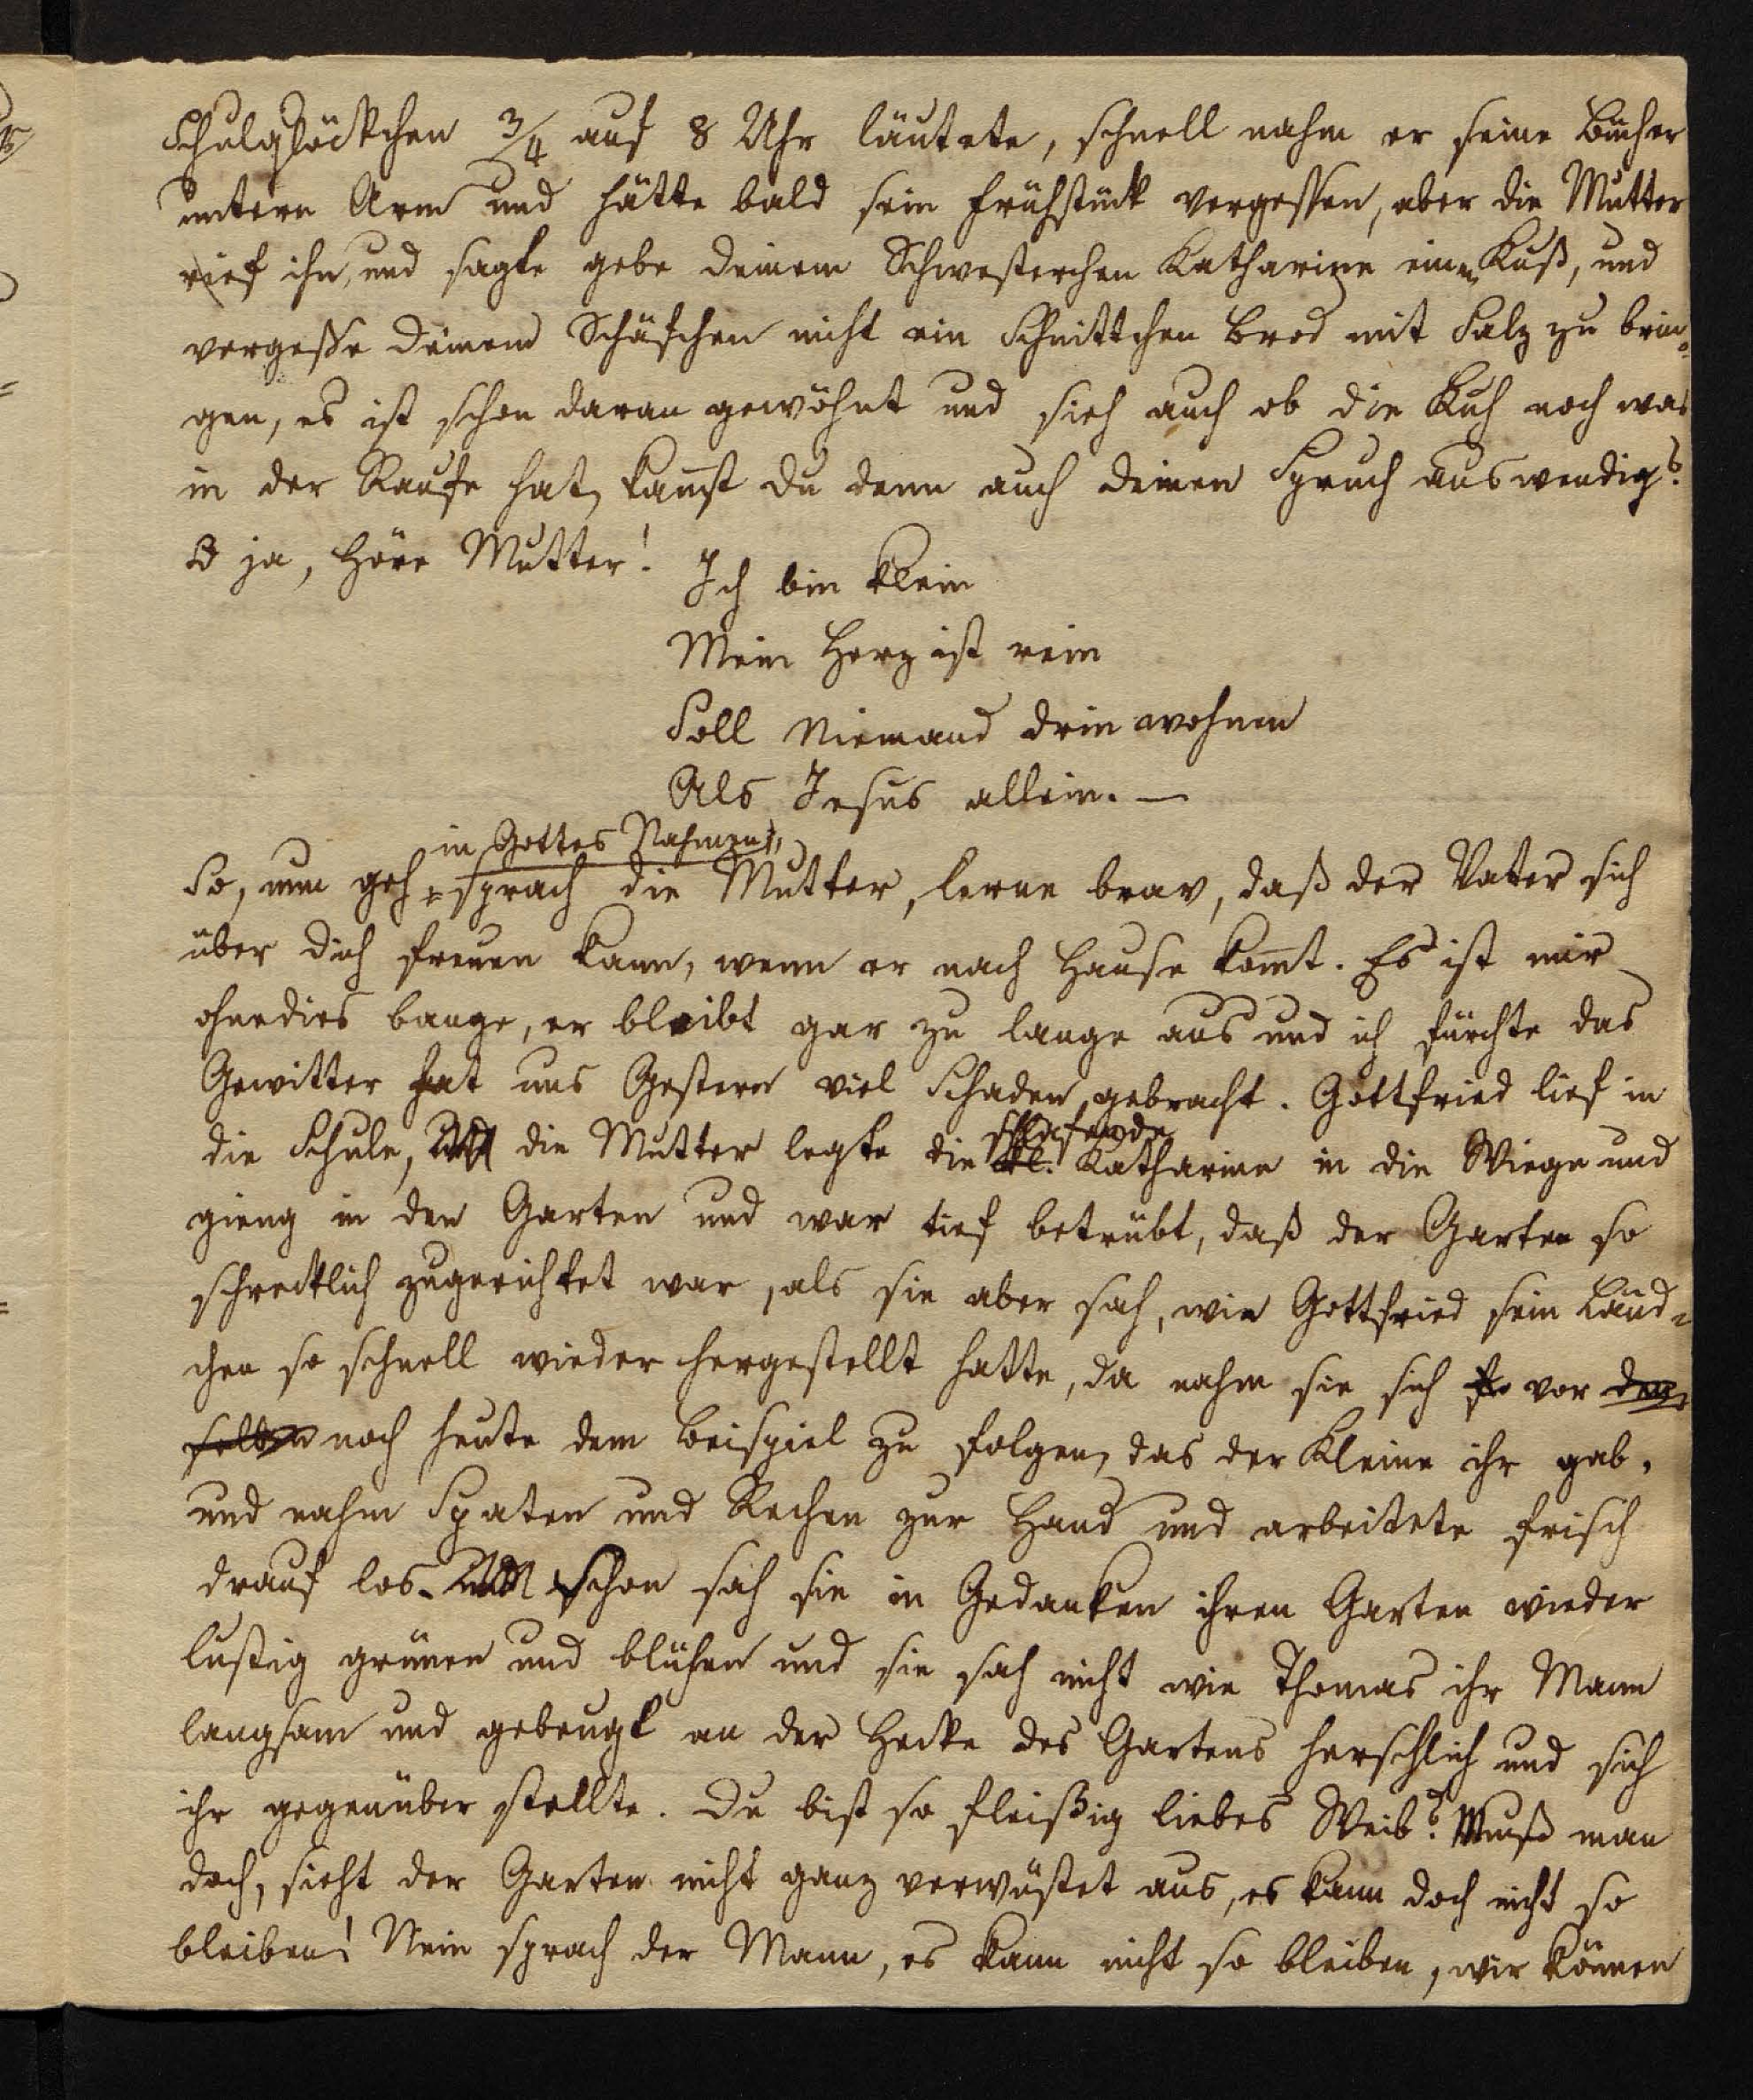 Schulglöckchen 3/4 auf 8 Uhr läutete, schnell nahm er seine Bücher
untern Arm und hätte bald sein Frühstück vergessen, aber die Mutter
rief ihn, und sagte gebe deinem Schwesterchen Katharine einen Kuß, und
vergesse deinem Schäfchen nicht ein Schnittchen Brod mit Salz zu brin-
gen, es ist schon daran gewöhnt und sieh auch ob die Kuh noch was
in der Raufe hat, kannst du denn auch deinen Spruch auswendig?
O ja, höre Mutter!
Ich bin klein
Mein Herz ist rein
Soll Niemand drin wohnen
Als Jesus allein. —
in Gottes Nahmen,
So, nun geh sprach die Mutter, lerne brav, daß der Vater sich
über dich freuen kann, wenn er nach Hause kom̄t. Es ist mir
ohnedies bange, er bleibt gar zu lange aus und ich fürchte das
Gewitter hat uns Gestern viel Schaden gebracht. Gottfried lief in
schlafende
die Schule, die Mutter legte die kl. Katharine in die Wiege und
gieng in den Garten und war tief betrübt, daß der Garten so
schrecklich zugerichtet war, als sie aber sah, wie Gottfried sein Länd-
chen so schnell wieder hergestellt hatte, da nahm sie sich vor dem-
selben noch heute dem Beispiel zu folgen, das der Kleine ihr gab,
und nahm Spaten und Rechen zur Hand und arbeitete frisch
drauf los. Schon sah sie in Gedanken ihren Garten wieder
lustig grünen und blühen und sie sah nicht wie Thomas ihr Mann
langsam und gebeugt an der Hecke des Gartens herschlich und sich
ihr gegenüber stellte. Du bist so fleißig liebes Weib? Muß man
doch, sieht der Garten nicht ganz verwüstet aus, es kann doch nicht so
bleiben! Nein sprach der Mann, es kann nicht so bleiben, wir können